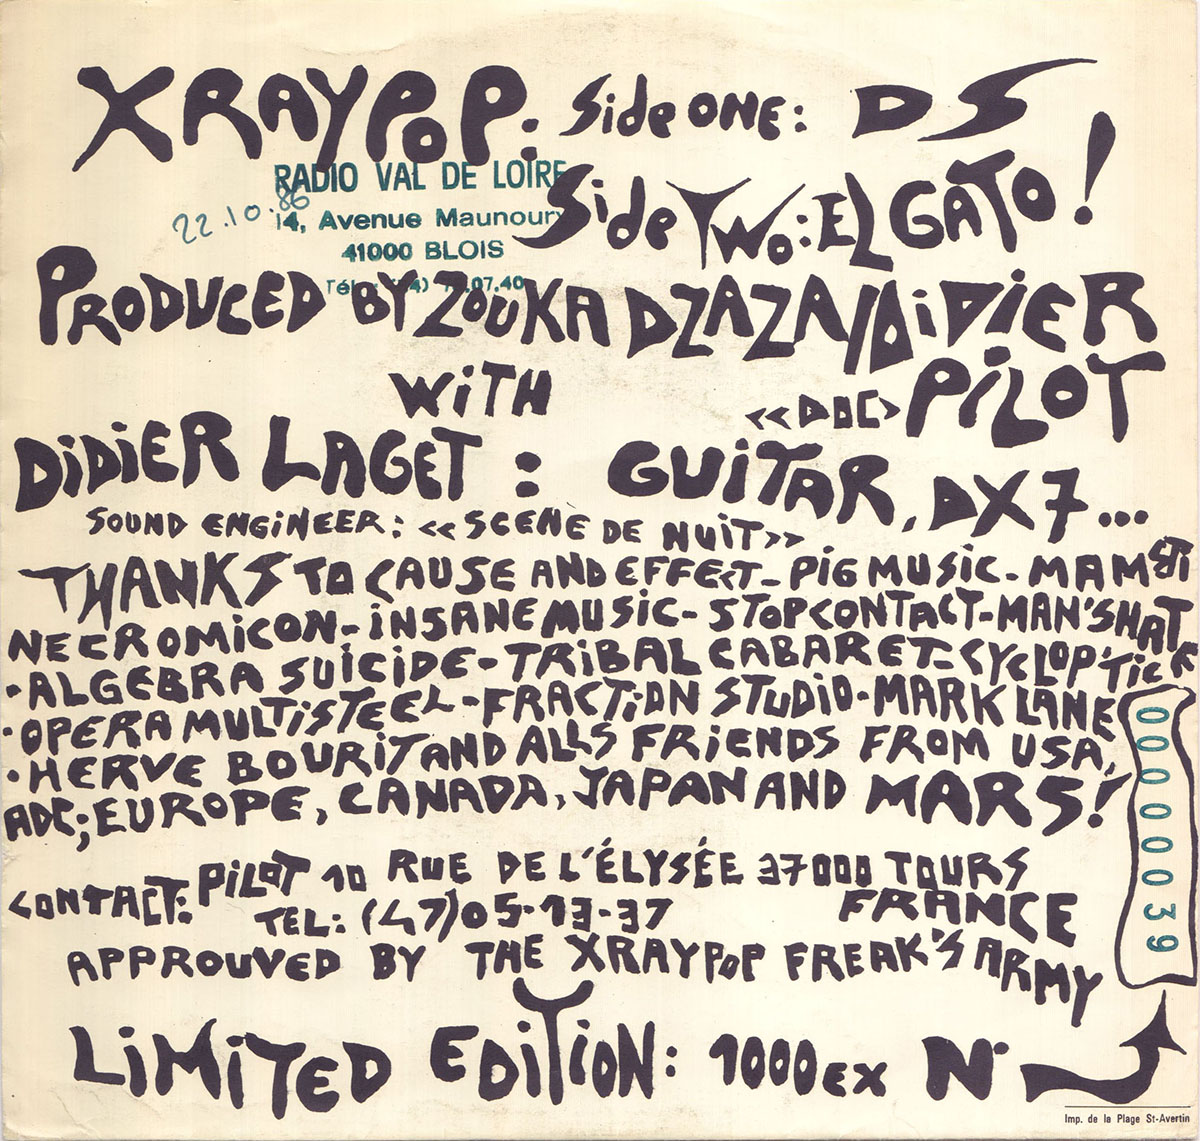 XRAYPOP: Side ONE: DS
RADIO VAL DE LOIRE
Side TWO: EL GATO!
22.10.86
14, Avenue Maunoury
41000 BLOIS
Tél.
07.40
PRODUCED BY ZOUKA DZAZA/DiDiER
WiTH
<<DOC> PiLOT
DiDiER LAGET: GUiTAR, DX7...
SOUND ENGiNEER: <<SCENE DE NUiT>>
THANKS TO CAUSE AND EFFECT_PiG MUSiC-MAM
NECROMiCON-iNSANE MUSiC-STOPCONTACT-MAN'S HAT
•ALGEBRA SUiCiDE-TRiBAL CABARET-CYCLOP'TiCK
•OPERA MULTiSTEEL-FRACTiON STUDiO-MARK LANE
•HERVE BOURiT AND ALLS FRiENDS FROM USA,
ADC;EUROPE, CANADA, JAPAN AND MARS!
00000039
CONTACT: PiLOT 10 RUE DE L'ÉLYSÉE 37000 TOURS
TEL: (47)05-13-37 FRANCE
APPROUVED BY THE XRAYPOP FREAK'S ARMY
LiMiTED EDiTiON: 1000 EX N°
Imp. de la Plage St-Avertin